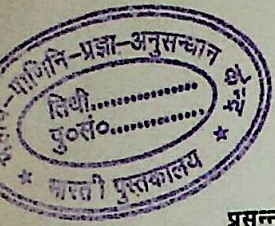 पाणिनि-प्रज्ञा-अनुसन्धान
तिथी..................
पु०सं०..................
★ भारती पुस्तकालय ★
प्रसन्न